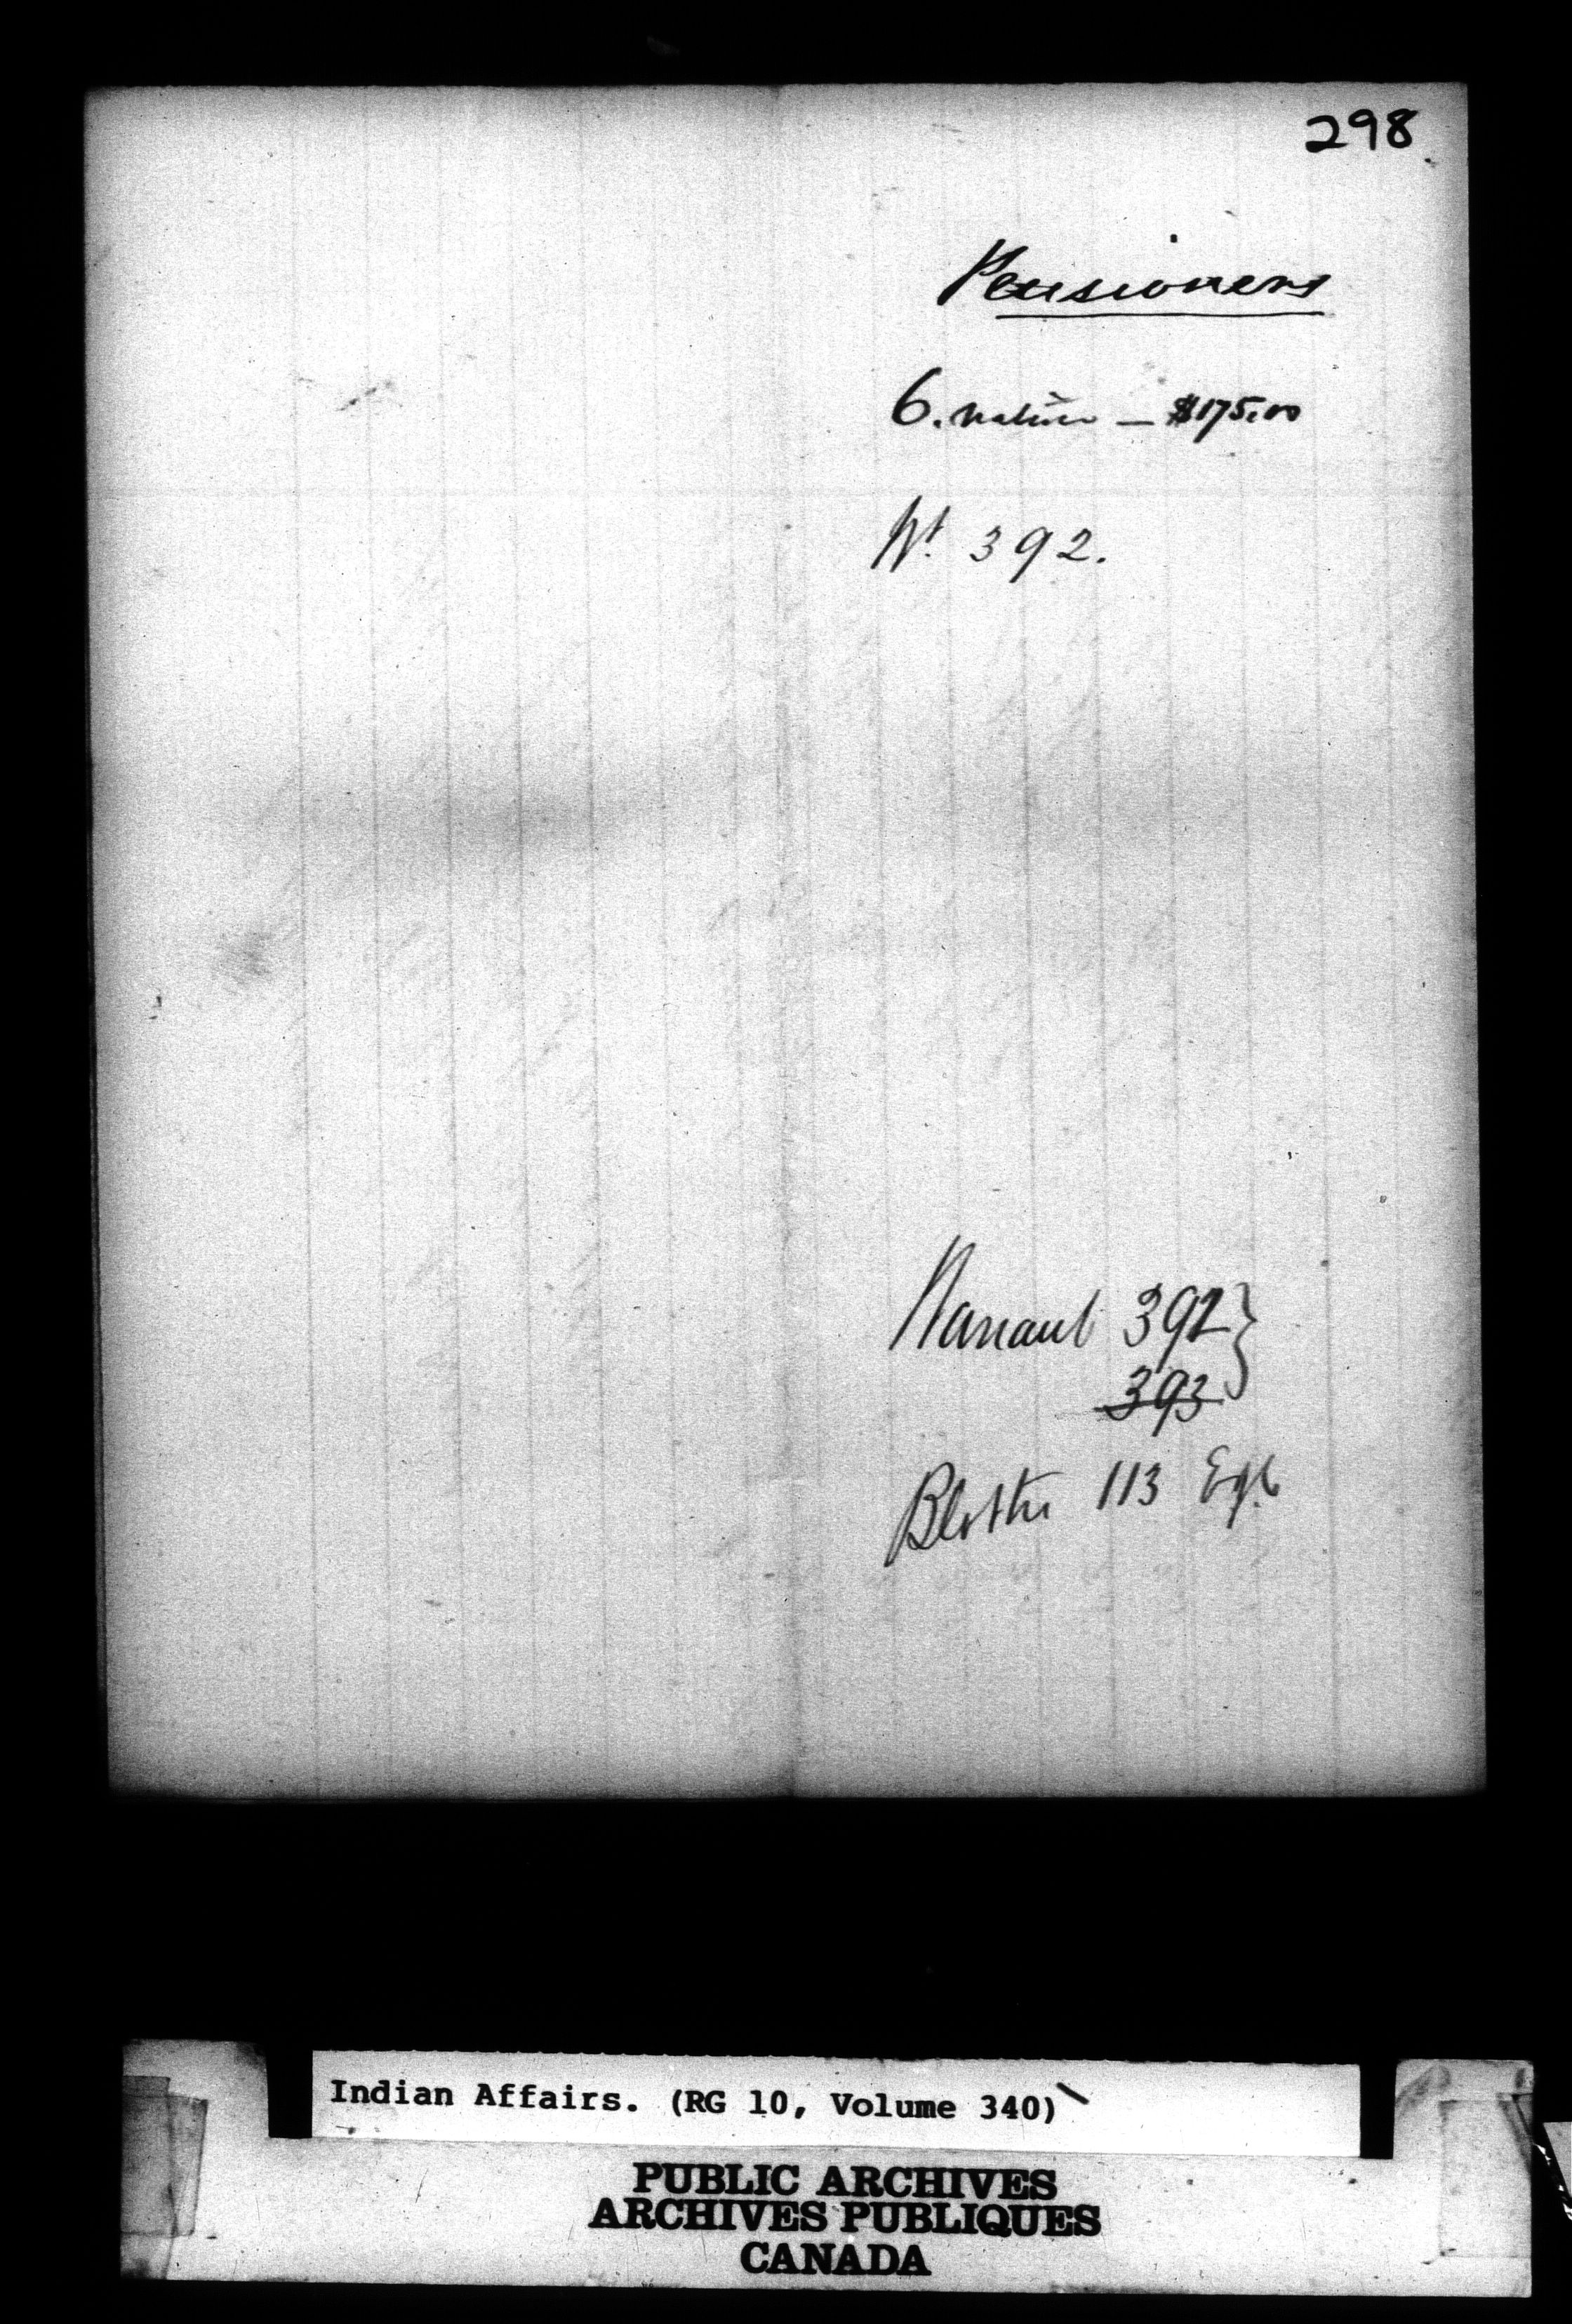 298
Pensioners
6. native — $175.00
Wt. 392.
Warrant 392 }
393
Blotter 113 Eg.b
Indian Affairs. (RG 10, Volume 340)
PUBLIC ARCHIVES
ARCHIVES PUBLIQUES
CANADA